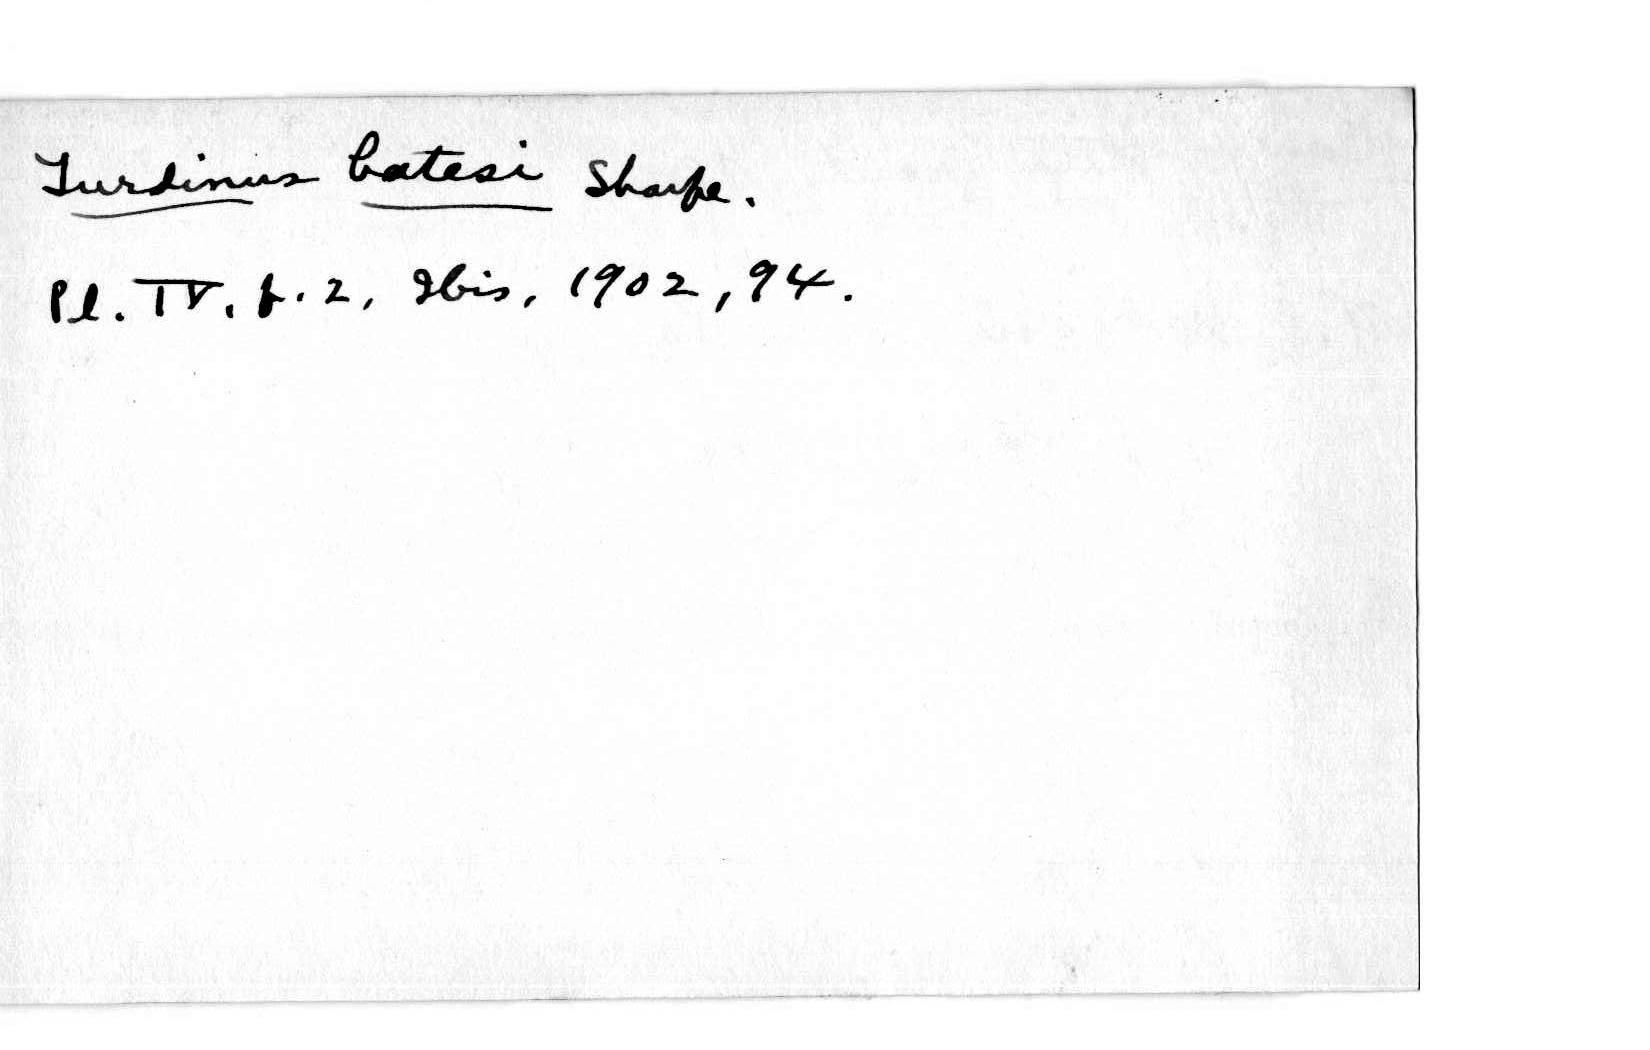 Turdinus batesi Sharpe.
Pl. IV, f. 2, Ibis, 1902, 94.